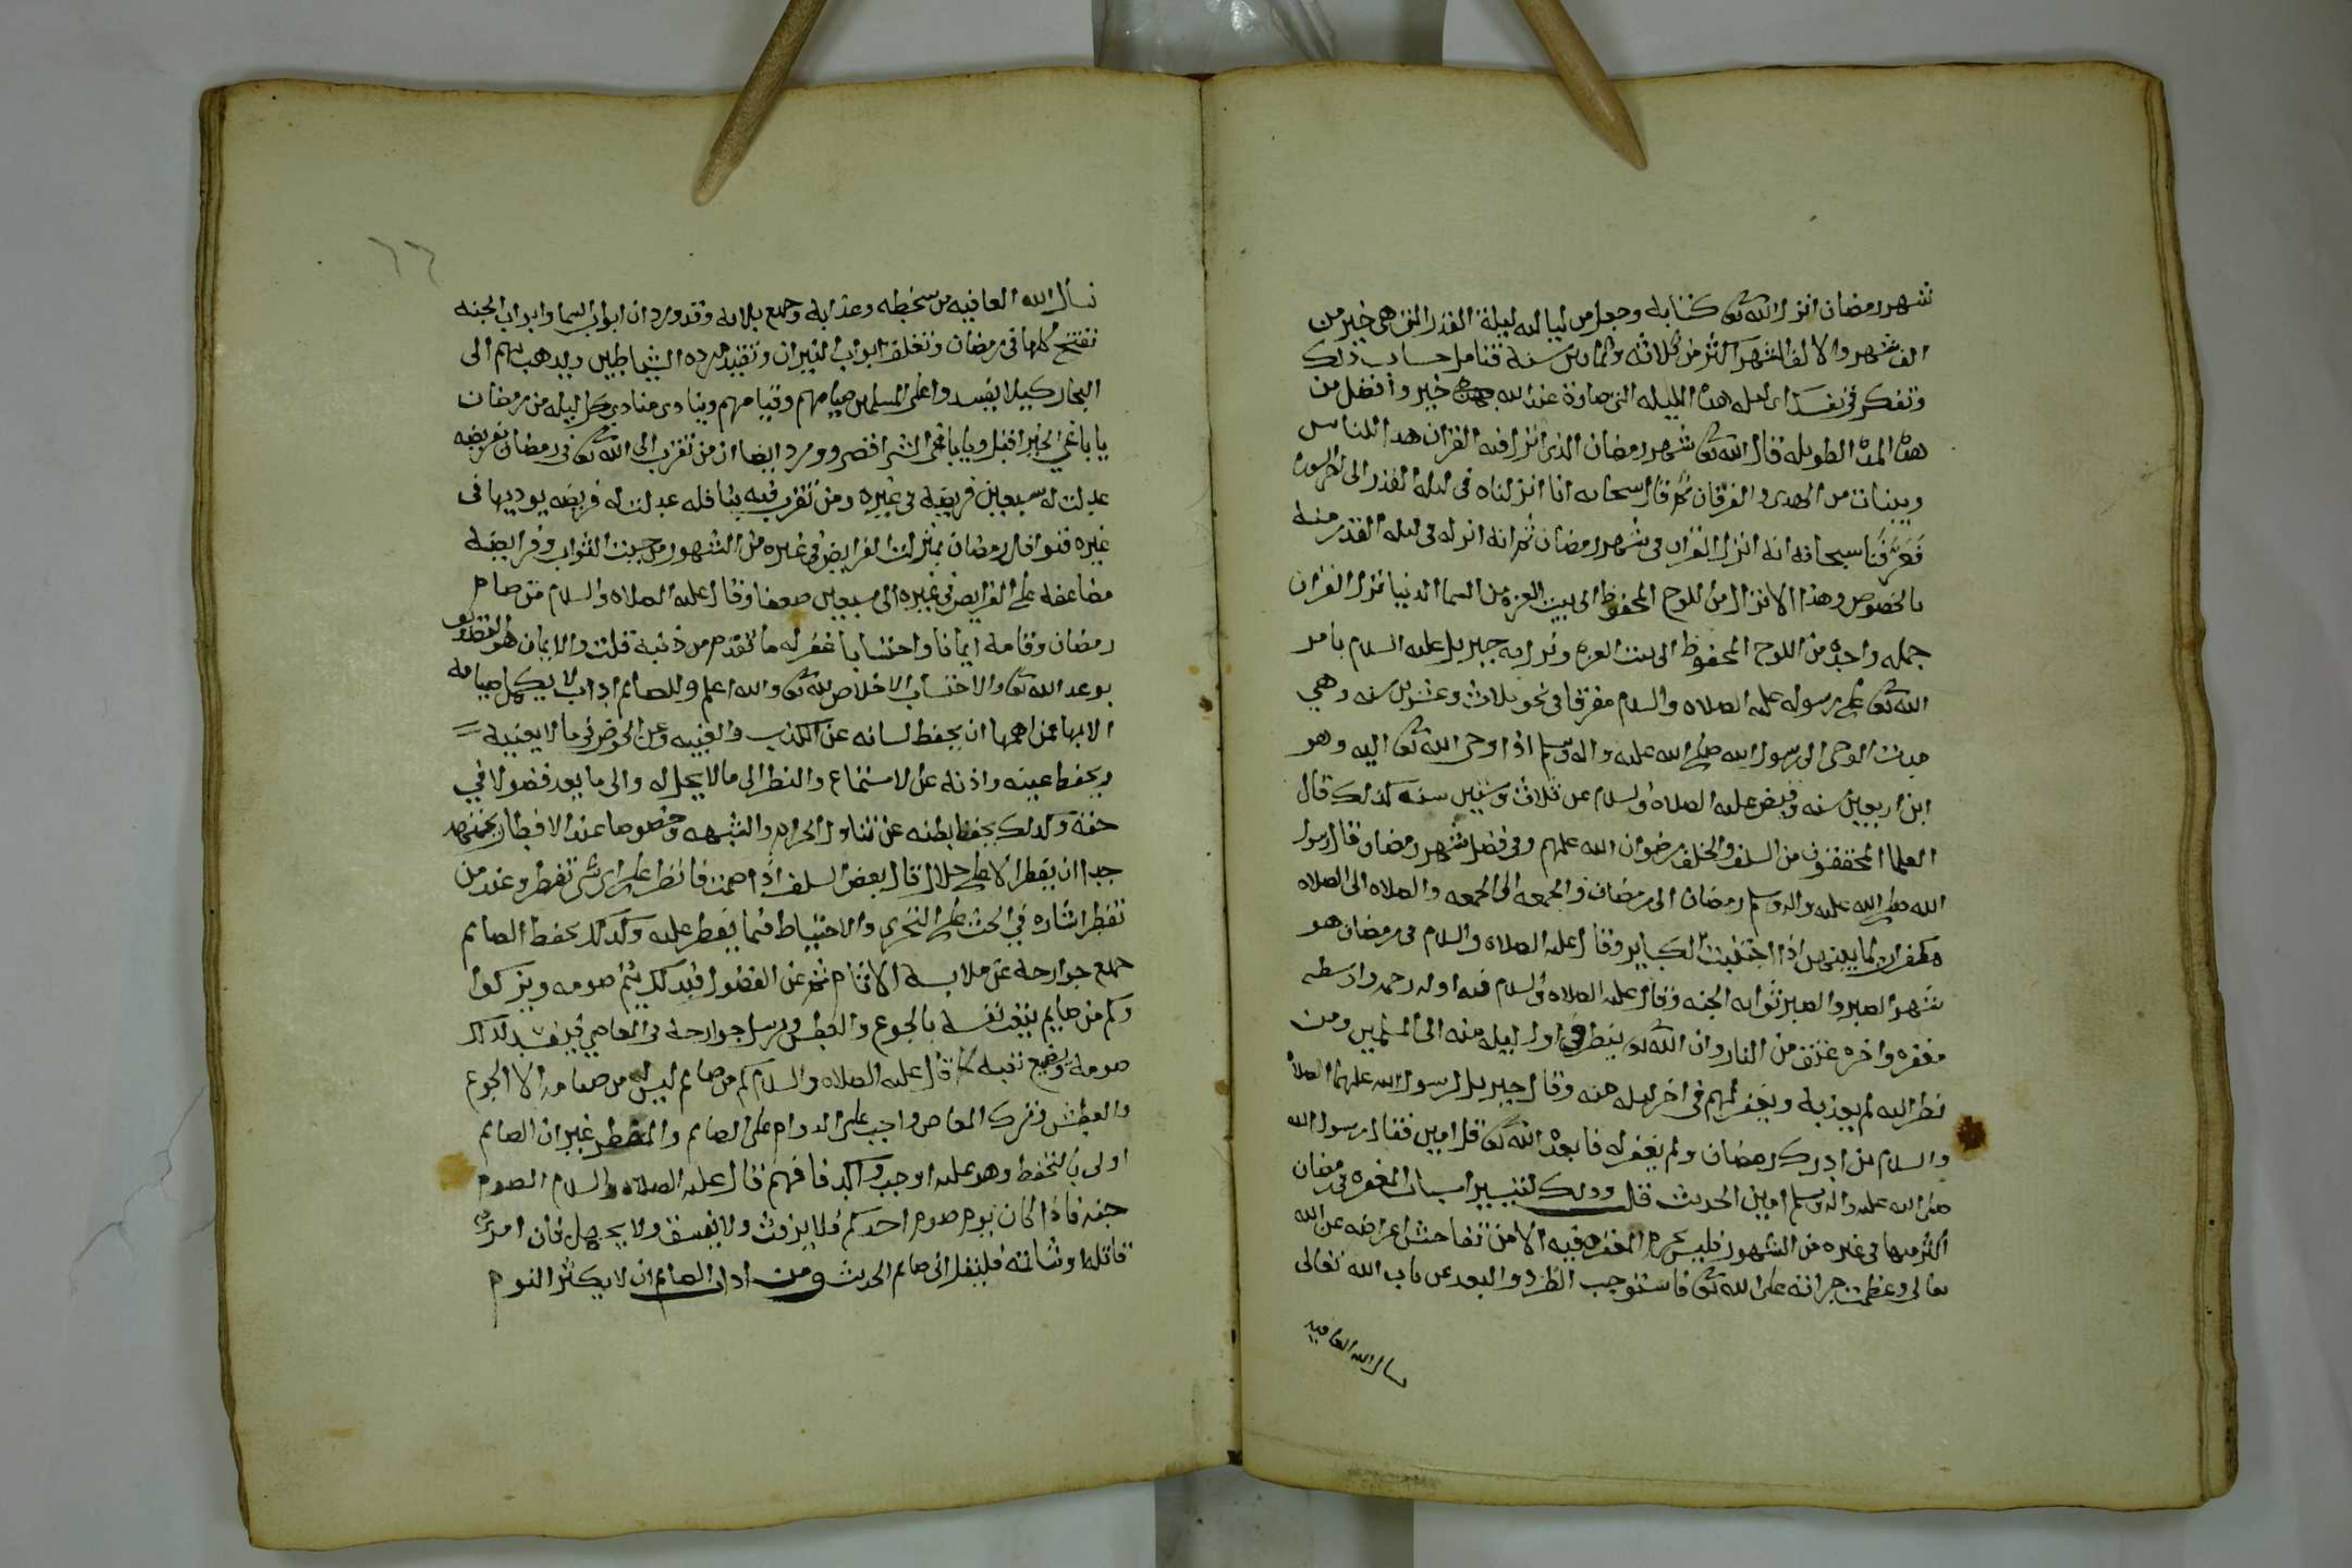 شهر رمضان انزل الله تعالى كتابه وجعل من لياليه ليلة القدر التي هي خير من
الف شهر والالف الشهر اكثر من ثلاثه وثمانين سنة فتامل حساب ذلك
وتفكر في نفسك اي ليله هذه الليله التي صارة عند الله خير وافضل من
هذه المدة الطويله قال الله تعالى شهر رمضان الذي انزل فيه القران هدا للناس
وبينات من الهدى والفرقان ثم قال سبحانه انا انزلناه في ليلة القدر الى اخر السورة
فعرفنا سبحانه انه انزل القران في شهر رمضان ثم انه انزله في ليلة القدر منه
بالخصوص وهذا الانزال من اللوح المحفوظ الى بيت العزه من السما الدنيا نزل القران
جمله واحدة من اللوح المحفوظ الى بيت العزه ونزل به جبريل عليه السلام بامر
الله تعالى على رسوله عليه الصلاه والسلام مفرقا في نحو ثلاث وعشرين سنه وهي
مدت الوحي الى رسول الله صلى الله عليه واله وسلم اذا اوحى الله تعالى اليه وهو
ابن اربعين سنه وقبض عليه الصلاه والسلام عن ثلاث وستين سنه كذلك قال
العلما المحققون من السلف والخلف رضوان الله عليهم وفي فضل شهر رمضان قال رسول
الله صلى الله عليه واله وسلم رمضان الى رمضان والجمعه الى الجمعه والصلاه الى الصلاه
مكفران لما بينهن اذا اجتنبت الكباير وقال عليه الصلاه والسلام في رمضان هو
شهر الصبر والصبر ثوابه الجنه وقال عليه الصلاه والسلام فيه اوله رحمه واوسطه
مغفره واخره عتق من النار وان الله تعالى ينظر في اول ليله منه الى المسلمين ومن
نظر اليه لم يعذبه ويغفر لهم في اخر ليله منه وقال جبريل لرسول الله عليهما الصلاة
والسلام من ادرك رمضان ولم يغفر له فابعده الله تعالى قل امين فقال رسول الله
صلى الله عليه واله وسلم امين الحديث قلت وذلك لتيسير اسباب المغفره في رمضان
اكثر منها في غيره من الشهور فليس يحرم المغفره فيه الا من تفاحش اعراضه عن الله
تعالى وعظمت جراته على الله تعالى فاستوجب الطرد والبعد عن باب الله تعالى
نسال الله العافيه
١٦
نسأل الله العافيه من سخطه وعذابه وجميع بلائه وقد ورد ان ابواب السما وابواب الجنه
تفتح كلها في رمضان وتغلق ابواب النيران وتقيد مردة الشياطين ويذهب بهم الى
البحار كيلا يفسدوا على المسلمين صيامهم وقيامهم وينادي منادي كل ليله من رمضان
يا باغي الخير اقبل ويا باغي الشر اقصر وورد ايضا ان من تقرب الى الله تعالى في رمضان بفريضه
عدلت له سبعين فريضه في غيره ومن تقرب فيه بنافله عدلت له فريضه يوديها في
غيره فنوافل رمضان بمنزلت الفرايض في غيره من الشهور من حيث الثواب وفرايضه
مضاعفه على الفرايض في غيره الى سبعين ضعفا وقال عليه الصلاه والسلام من صام
رمضان وقامه ايمانا واحتسابا غفر له ما تقدم من ذنبه قلت والايمان هو التصديق
بوعد الله تعالى والاحتساب الاخلاص لله تعالى والله اعلم وللصائم اداب لا يكمل صيامه
الا بها فمن اهمها ان يحفظ لسانه عن الكذب والغيبه وعن الخوض في ما لا يعنيه
ويحفظ عينه واذنه عن الاستماع والنظر الى ما لا يحل له والى ما يعد فضولا في
حقه وكذلك يحفظ بطنه عن تناول الحرام والشبهه وخصوصا عند الافطار يجتهد
جدا ان يفطر الا على حلال قال بعض السلف اذا صمت فانظر على اي شي تفطر وعند من
تفطر اشاره في الحث على التحري والاحتياط فيما يفطر عليه وكذلك يحفظ الصايم
جميع جوارحه عن ملابسة الاثام ثم عن الفضول فبذلك يتم صومه ويزكوا
وكم من صايم يتعب نفسه بالجوع والعطش ويرسل جوارحه في المعاصي فيفسد لذلك
صومه ويضيع تعبه كما قال عليه الصلاه والسلام كم من صايم ليس له من صيامه الا الجوع
والعطش وترك المعاصي واجب على الدوام على الصايم والمفطر غير ان الصايم
اولى بالتحفظ وهو عليه اوجب واكد فافهم قال عليه الصلاه والسلام الصوم
جنه فاذا كان يوم صوم احدكم فلا يرفث ولا يفسق ولا يجهل فان امرؤ
قاتله او شاتمه فليقل اني صايم الحديث ومن اداب الصايم ان لا يكثر النوم